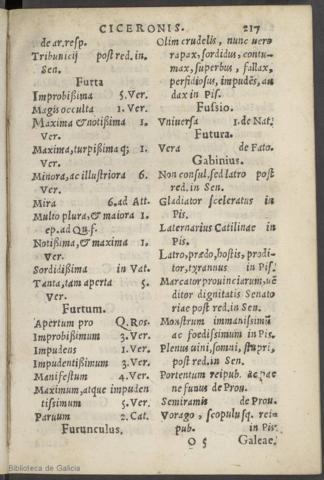 CICERONIS. 217
de ar. resp.
Tribunicij post red. in.
Sen.
Furta
Improbißima 5. Ver.
Magis occulta 1. Ver.
Maxima & notißima 1.
Ver.
Maxima, turpißima q; 1.
Ver.
Minora, ac illustriora 6.
Ver.
Mira 6. ad Att.
Multo plura, & maiora 1.
ep. ad Q.f.
Notißima, & maxima 1.
Ver.
Sordidißima in Vat.
Tanta, tam aperta 5.
Ver.
Furtum.
Apertum pro Q. Ros.
Improbißimum 3. Ver.
Impudens 1. Ver.
Impudentißimum 3. Ver.
Manifestum 4. Ver.
Maximum, atque impuden
tissimum 5. Ver.
Paruum 2. Cat.
Furunculus.
Olim crudelis, nunc vero
rapax, sordidus, contu-
max, superbus, fallax,
perfidiosus, impudẽs, an
dax in Pis.
Fußio.
Vniuersa 1. de Nat.
Futura.
Vera de Fato.
Gabinius.
Non consul, sed latro post
red. in Sen.
Gladiator sceleratus in
Pis.
Laternarius Catilinae in
Pis.
Latro, prædo, hostis, prodi-
tor, tyrannus in Pis.
Mercator prouinciarum, uẽ
ditor dignitatis Senato
riae post red. in Sen.
Monstrum immanissimũ
ac foedissimum in Pis.
Plenus uini, somni, stupri,
post red. in Sen.
Portentum reipub. ac pæ
ne funus de Prou.
Semiramis de Prou.
Vorago, & scopulusq. rei
pub. in Pis.
O 5 Galeae.
Biblioteca de Galicia